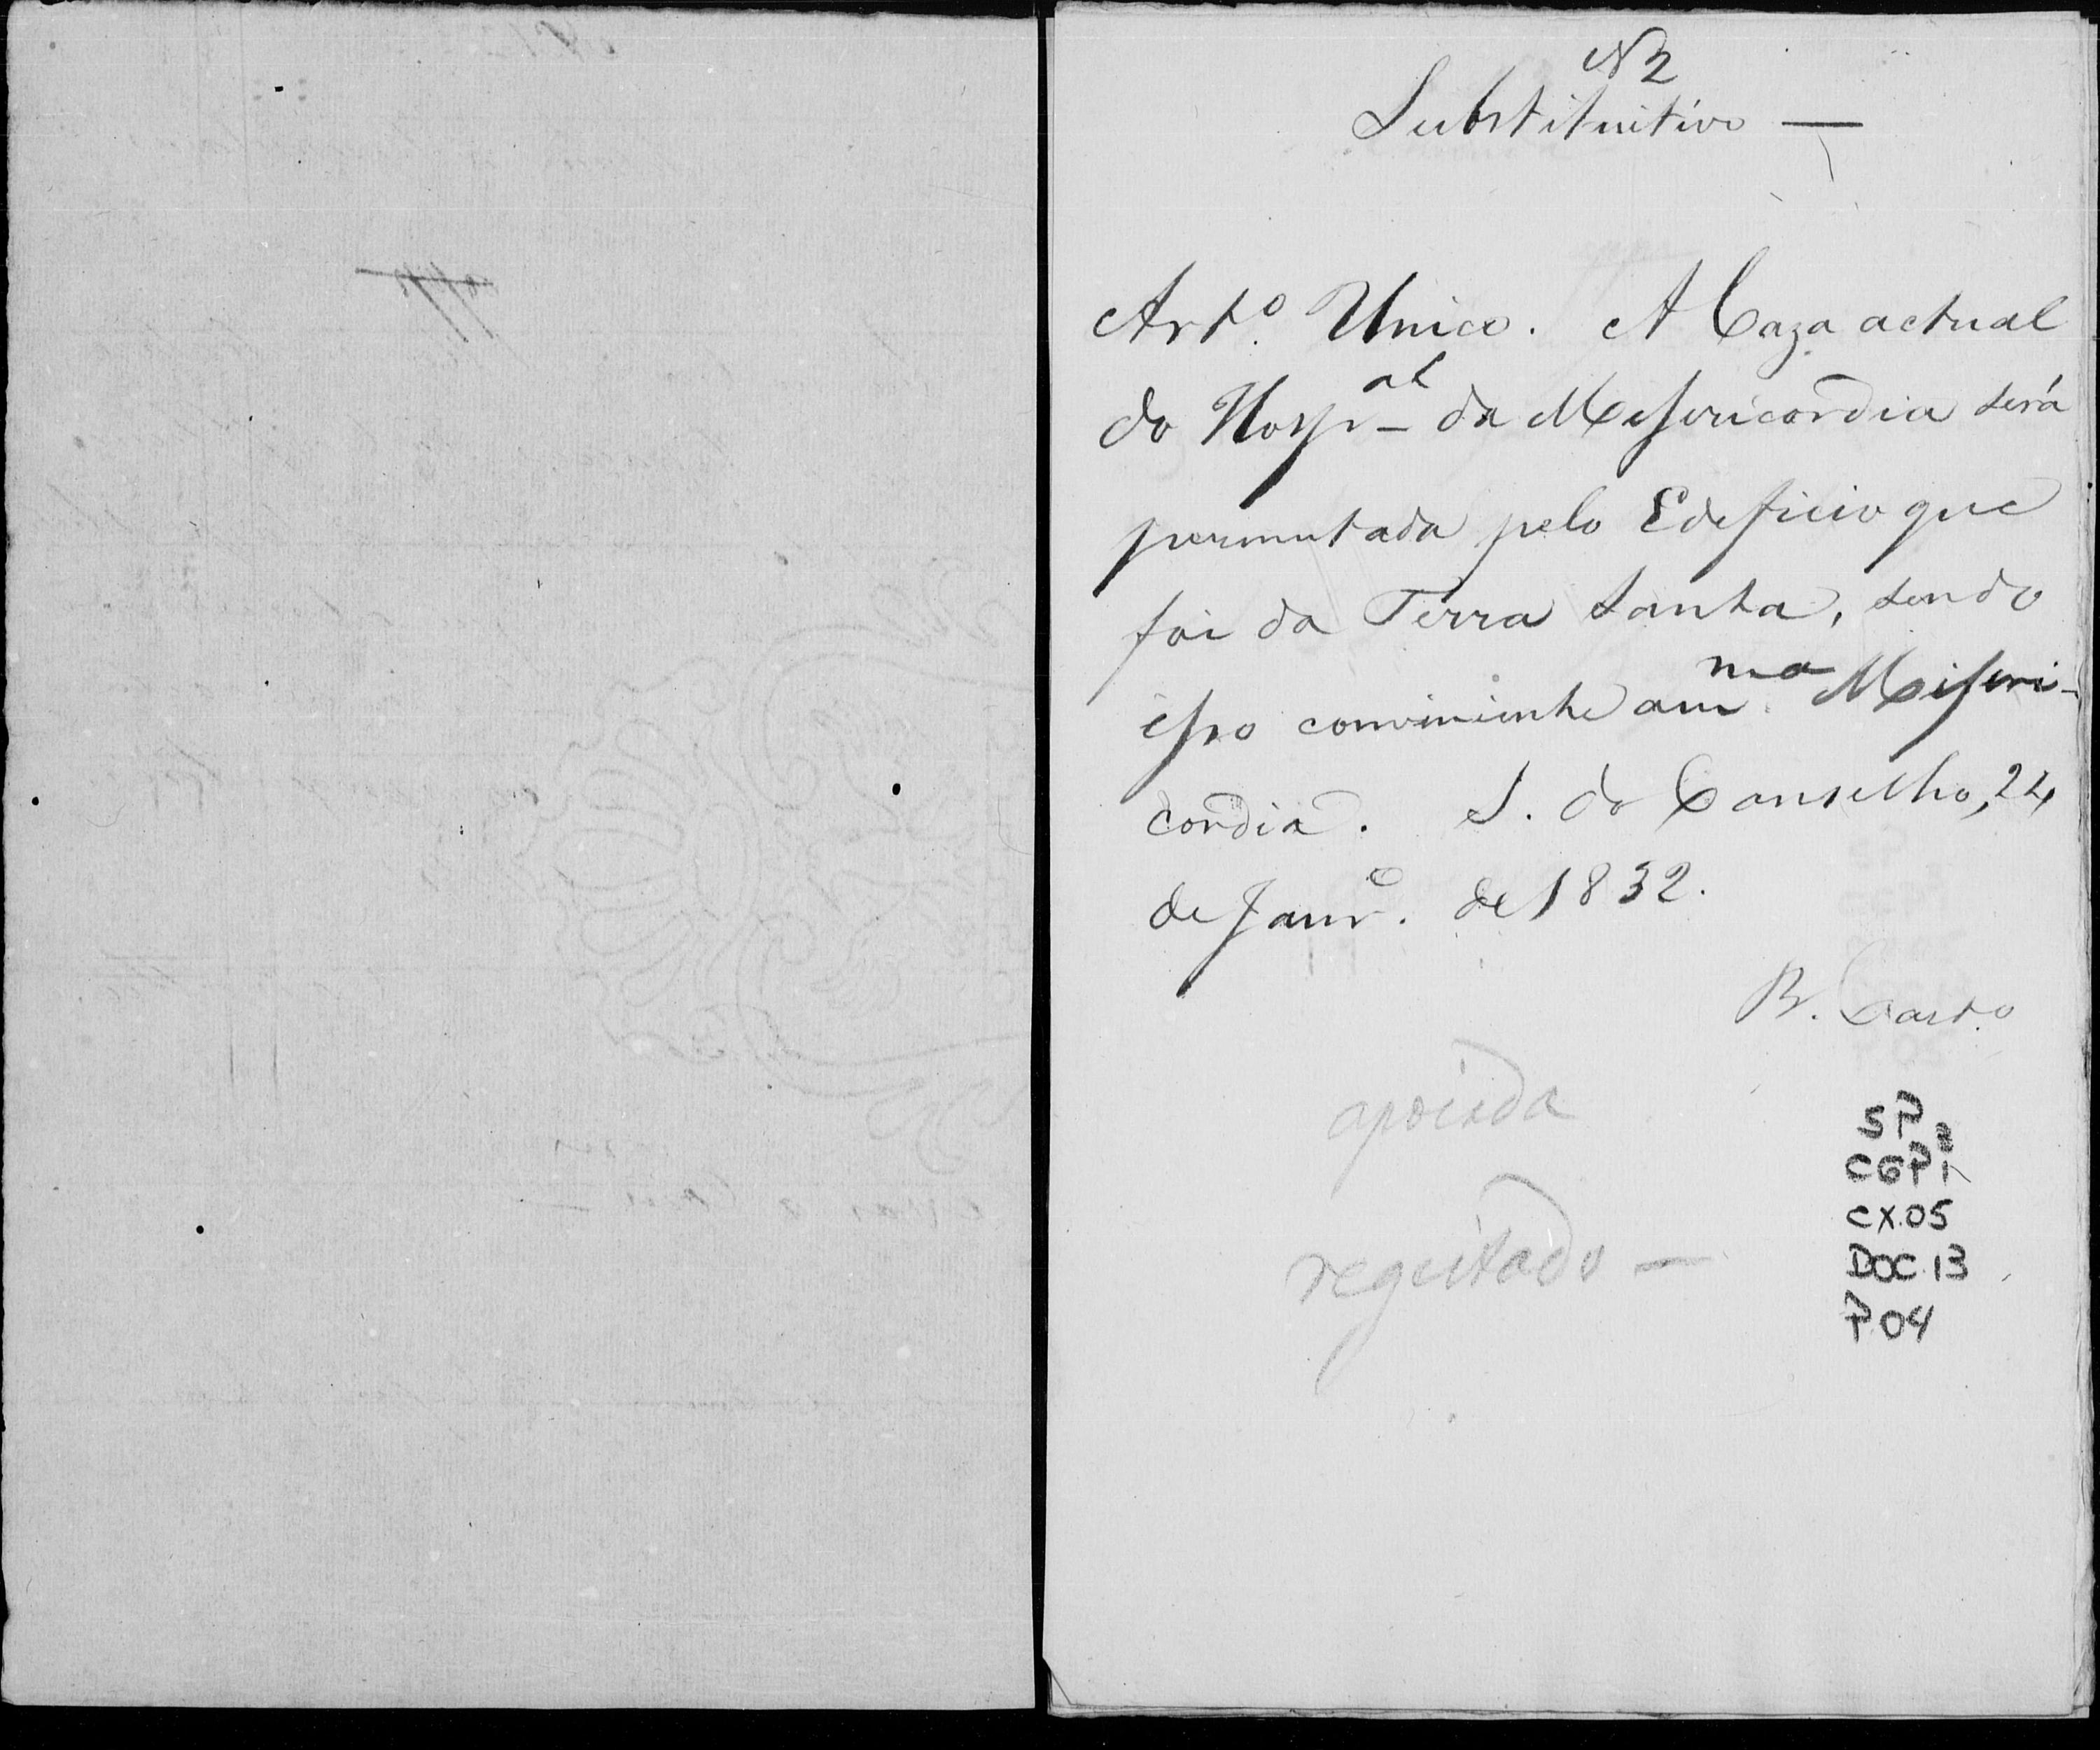 N 2
Substituitivo —
Art.º Unico. A Caza actual
do Hosp.al da Mesericordia será
permutada pelo Edeficio que
foi da Terra Santa, sendo
isso conviniente a m.ma Miseri-
cordia. S. do Conselho, 24
de Janr.º de 1832.
B. Casto
apoiada
regeitado —
SP
CGP1
CX.05
DOC.13
P.04